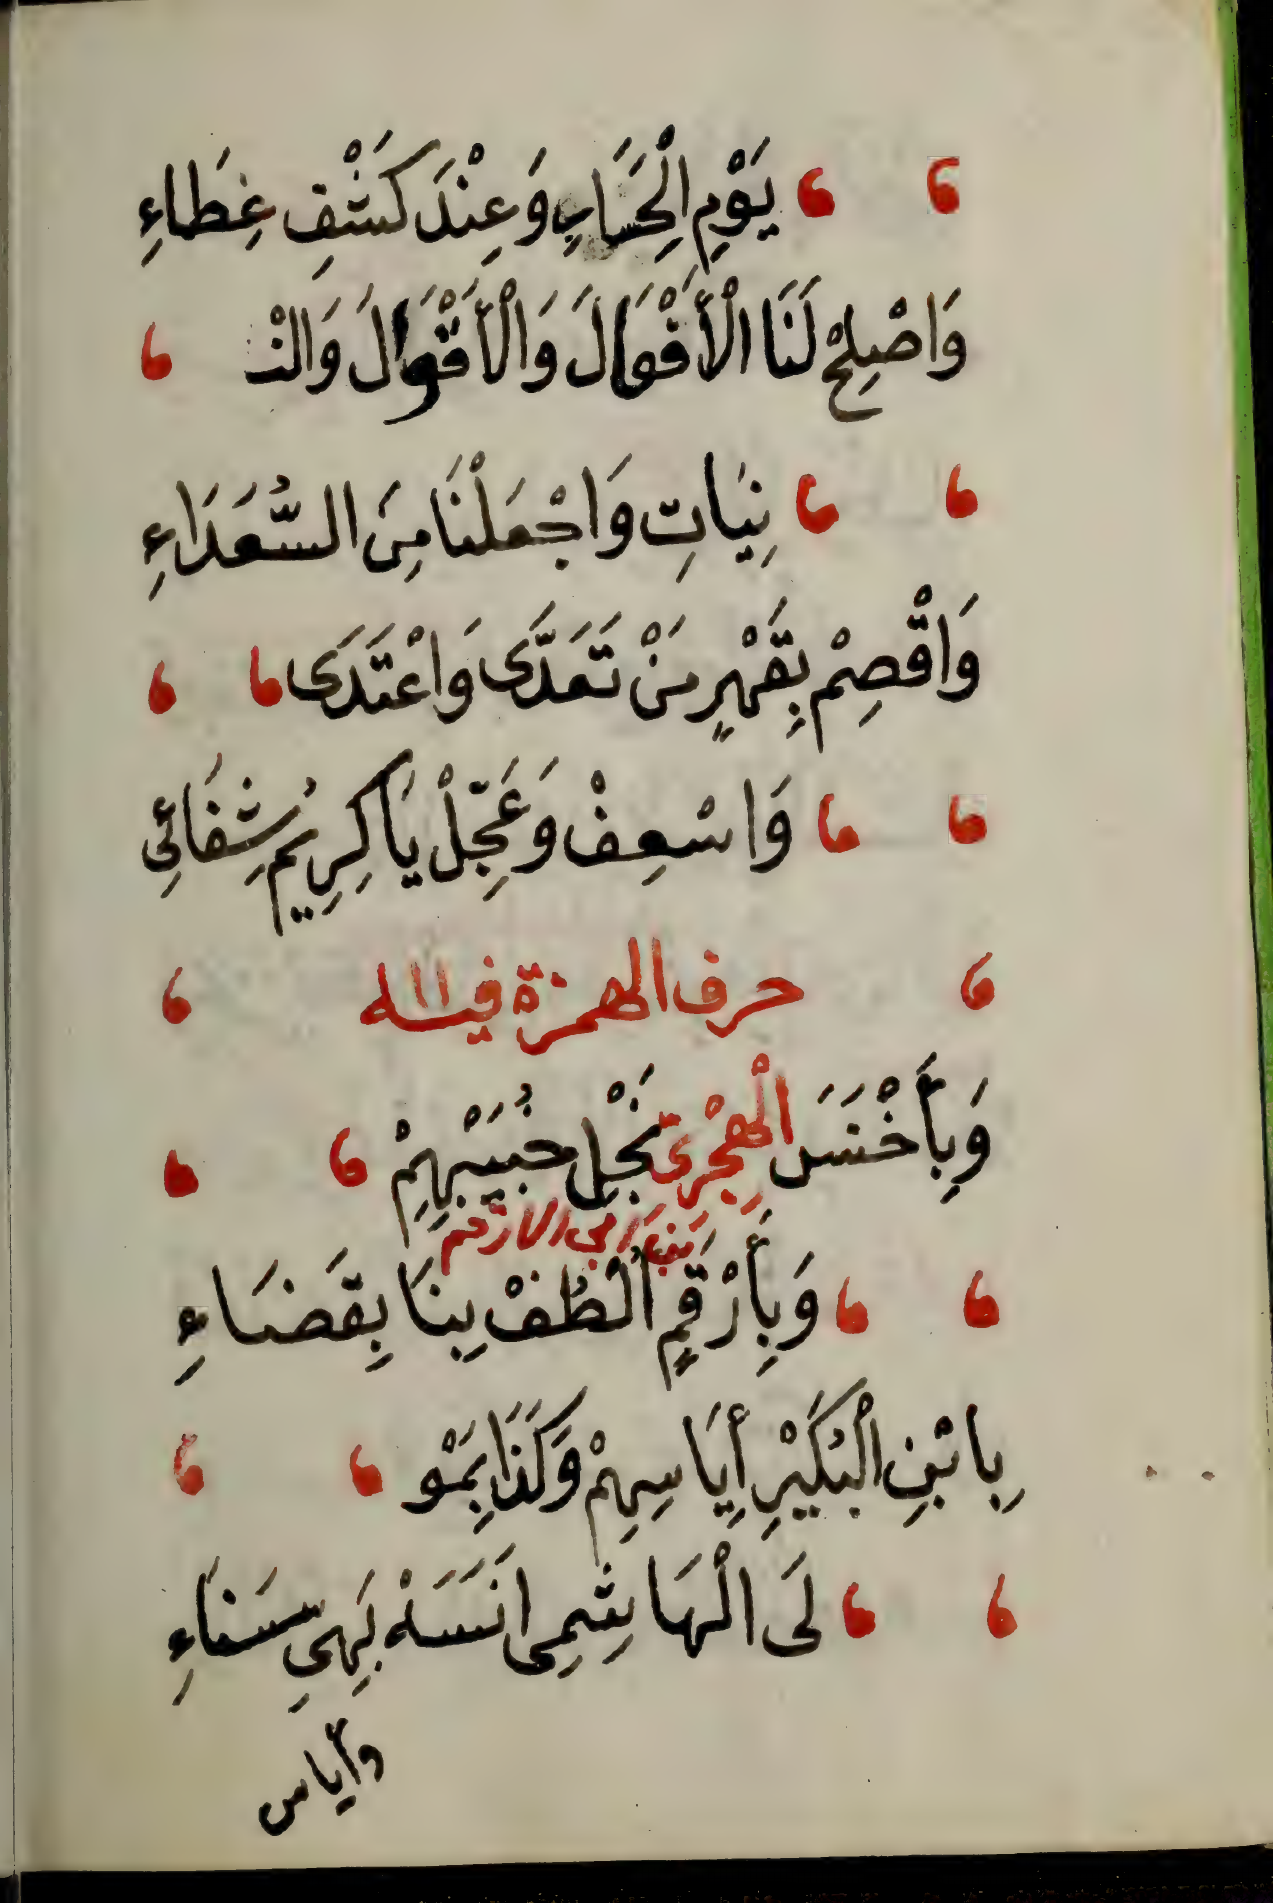 يَوْمِ الْحِسَابِ وَعِنْدَ كَشْفِ غِطَاءِ
وَاصْلِحْ لَنَا الْأَفْوَالَ وَالْأَقْوَالَ وَالنْـ
نِيَاتِ وَاجْعَلْنَا مِنَ السُّعَدَاءِ
وَاقْصِمْ بِقَهْرٍ مَنْ تَعَدَّى وَاعْتَدَى
وَاسْعِفْ وَعَجِّلْ يَا كَرِيمُ شِفَائِي
حرف الهمزة فيه
وَبِأَخْنَسَ الْهِجْرِيِّ نَجْلِ خُبَيْبِهِمْ
ابى الارقم
وَبِأَرْقَمٍ اُلْطُفْ بِنَا بِقَضَاءِ
بِابْنِ الْبُكَيْرِ أَيَاسِهِمْ وَكَذَا بِمَوْ
لَى الْهَاشِمِى انَسَهْ بَهِيِ سَنَاءِ
وأياس